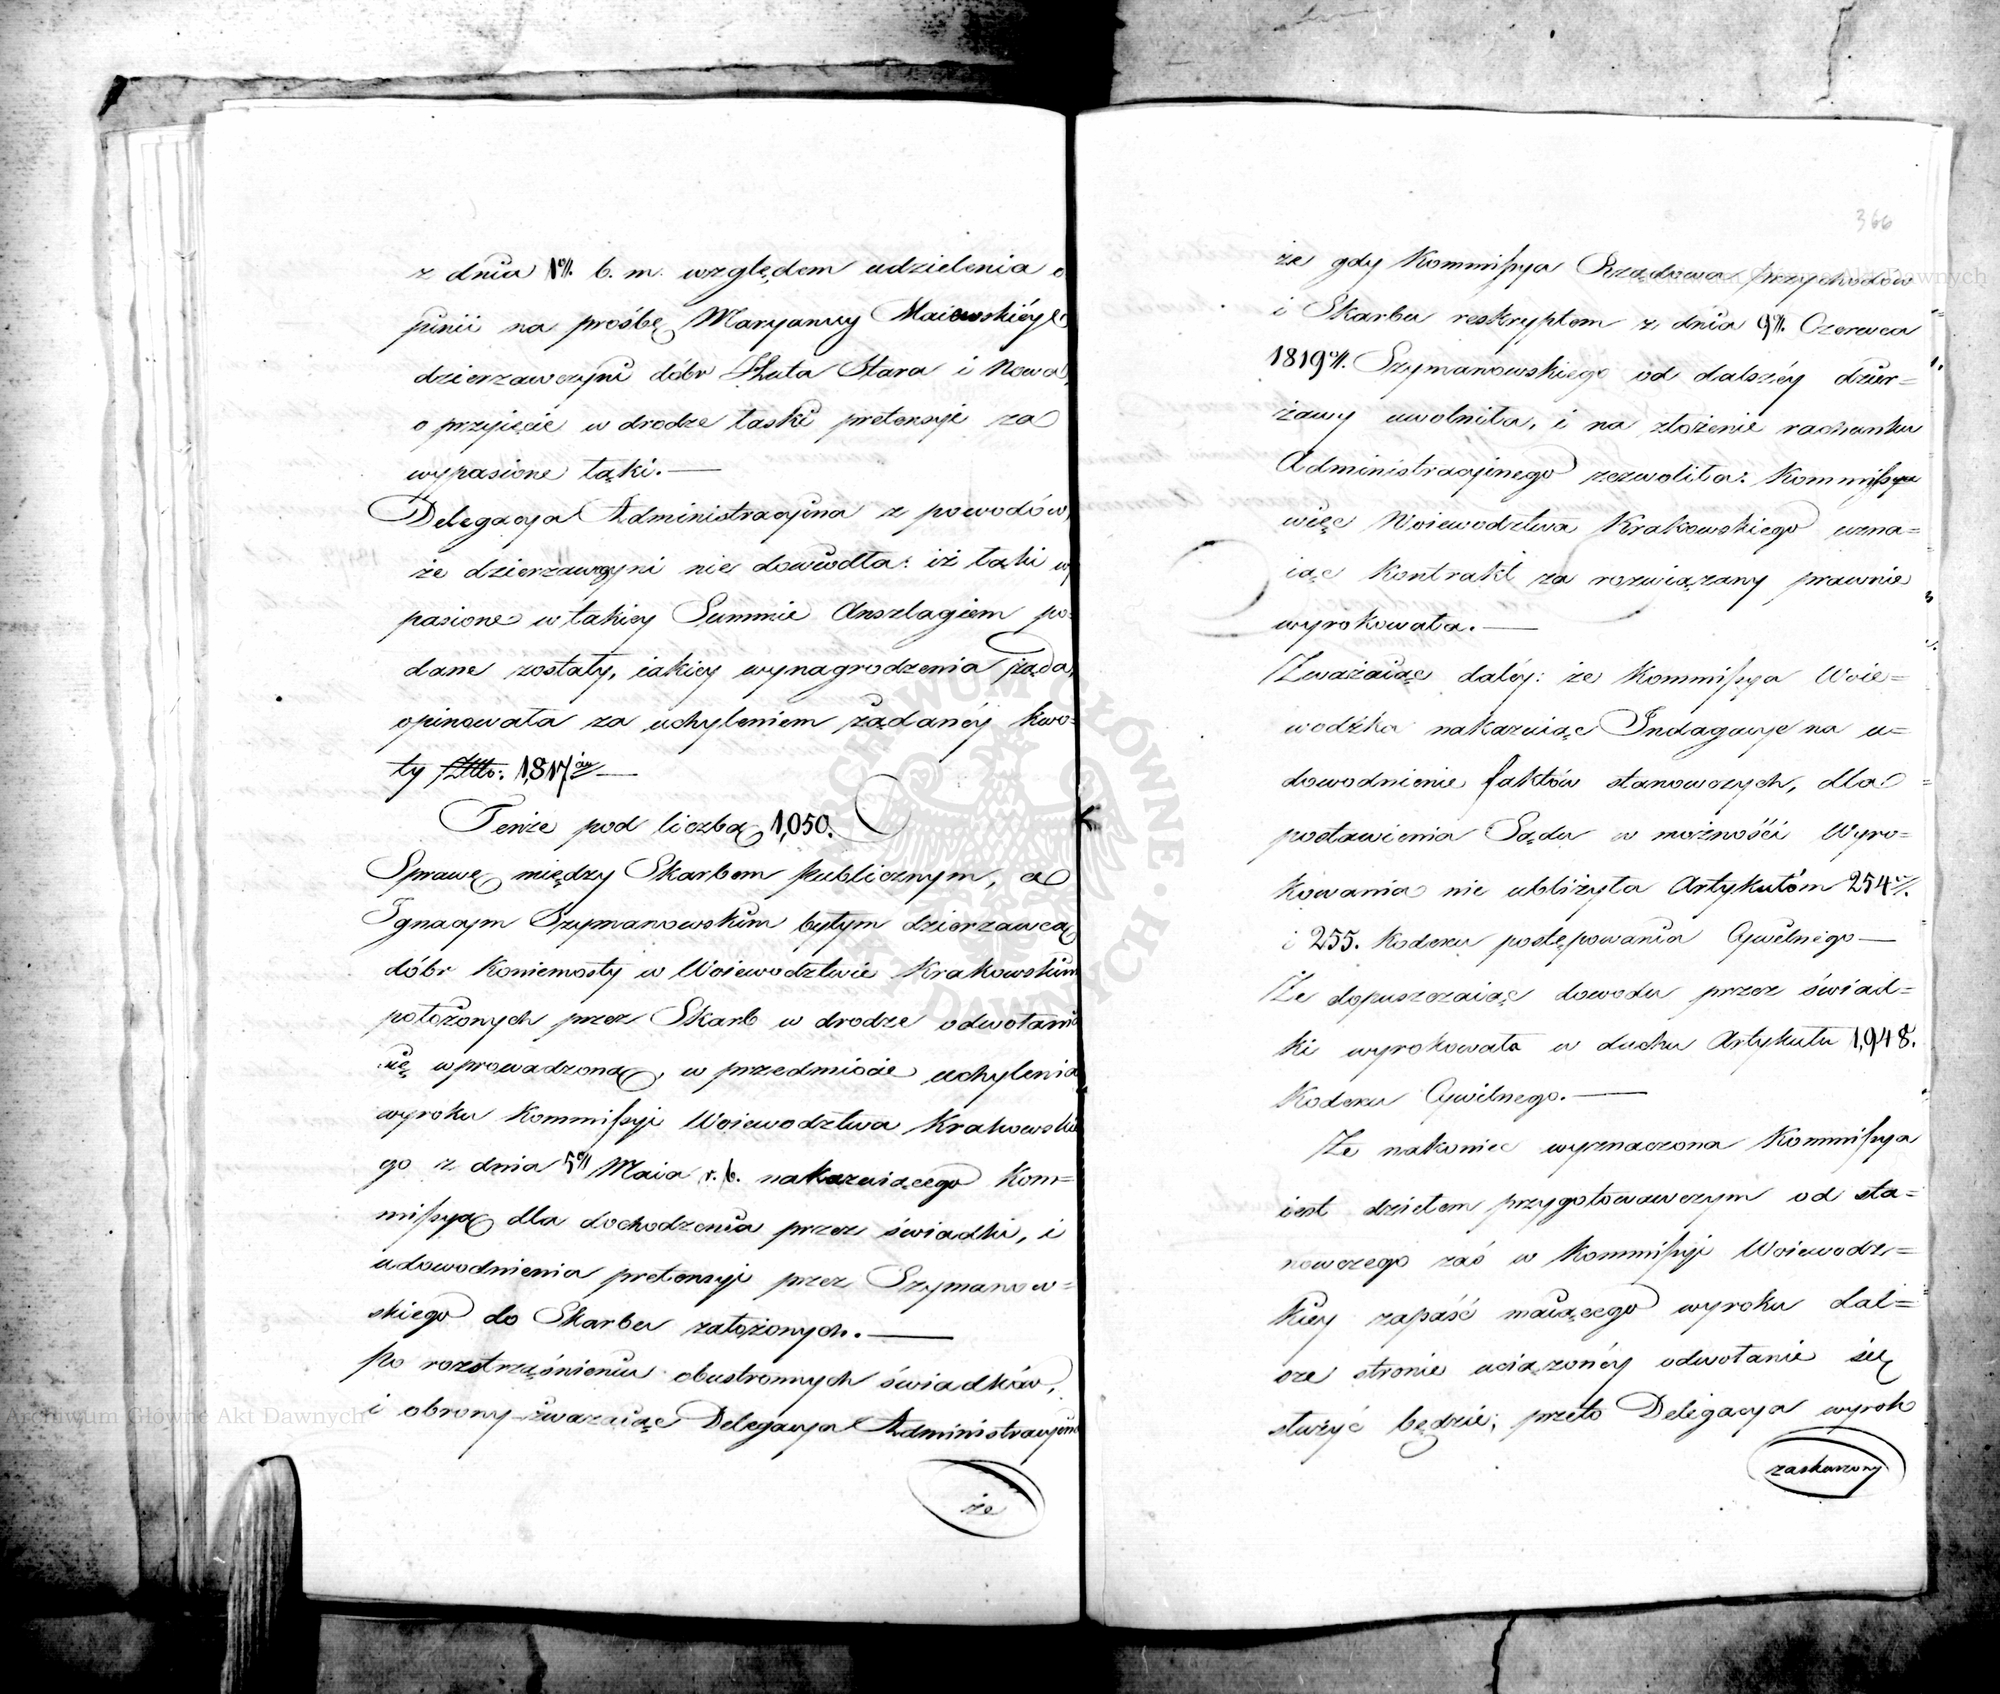 z dnia 1go b. m. względem udzielenia o
pinii na prośbę Maryanny Maiewskiéy
dzierzawczyni dóbr Huta Stara i Nowa,
o przyięcie w drodze łaski pretensyi za
wypasione łąki.—
Delegacya Administracyina z powodów,
że dzierzawczyni nie dowiodła: iż łąki wy
pasione w takiey Summie Anszlagiem po=
dane zostały, iakiey wynagrodzenia żąda,
opinowała za uchyleniem żądanéy kwo=
ty Złło: 1,817
Tenże pod liczbą 1,050.
Sprawę między Skarbem Publicznym, a
Ignacym Szymanowskim byłym dzierzawcą
dóbr Koniemosty w Woiewództwie Krakowskim
położonych przez Skarb w drodze odwołania
się wprowadzoną, w przedmiocie uchylenia
wyroku Kommissyi Woiewództwa Krakowskie
go z dnia 5go Maia r. b. nakazuiącego Kom=
missyą dla dochodzenia przez świadki, i
udowodnienia pretensyi przez Szymanow=
skiego do Skarbu założonych.—
Po roztrząśnieniu obustronnych świadków,
i obrony zwazaiąc Delegacya Administracyina
że
366
że gdy Kommissya Rządowa Przychodów
i Skarbu reskryptem z dnia 9go Czerwca
1819 Szymanowskiego od dalszéy dzier=
żawy uwolniła, i na złożenie rachunku
Administracyinego zezwoliła: Kommissya
więc Woiewództwa Krakowskiego uzna=
iąc Kontrakt za rozwiązany prawnie
wyrokowała.—
Zważaiąc daléy: że Kommissya Woie=
wódzka nakazuiąc Indagacye na u=
dowodnienie faktów stanowczych, dla
postawienia Sądu w możności Wyro=
kowania nie ubliżyła Artykułom 254
i 255. Kodexu postępowania Cywilnego—
Że dopuszczaiąc dowodu przez świad=
ki wyrokowała w duchu Artykułu 1,948.
Kodexu Cywilnego.—
Że nakoniec wyznaczona Kommissya
iest dziełem przygotowawczym od sta=
nowczego zaś w Kommissyi Woiewodz=
kiey zapaść maiącego wyroku dal=
sze stronie uciążonéy odwołanie się
służyć będzie; przeto Delegacya wyrok
zaskarzony
Archiwum Główne Akt Dawnych
Archiwum Główne Akt Dawnych
ARCHIWUM GŁÓWNE AKT DAWNYCH